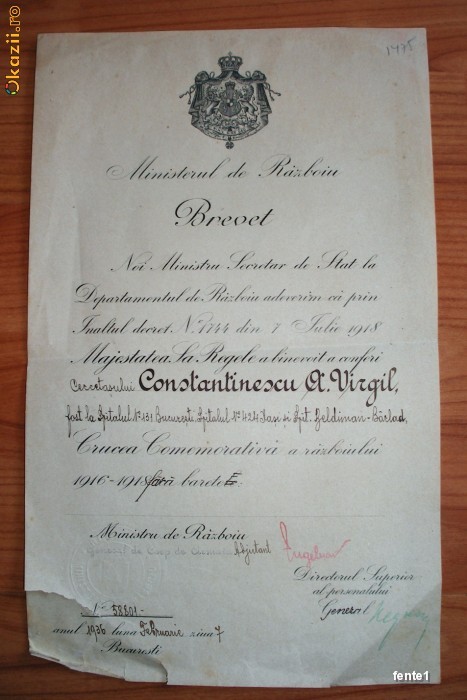 Okazii.ro
1475
Ministerul de Război
Brevet
Noi Ministru Secretar de Stat la
Departamentul de Război adeverim că prin
Înaltul decret N. 1744 din 7 Iulie 1918
Majestatea Sa Regele a binevoit a conferi
Cercetașului Constantinescu A. Virgil,
fost la Spitalul Nº 131 București, Spitalul Nº 424 Iași și Spit. Beldiman-Bârlad,
Crucea Comemorativă a războiului
1916-1918 fără barete.
Ministru de Război
General de Corp de Armată Adjutant
Directorul Superior
al personalului
General
Nº 58601-
anul 1936 luna Februarie ziua 7
București
fente1